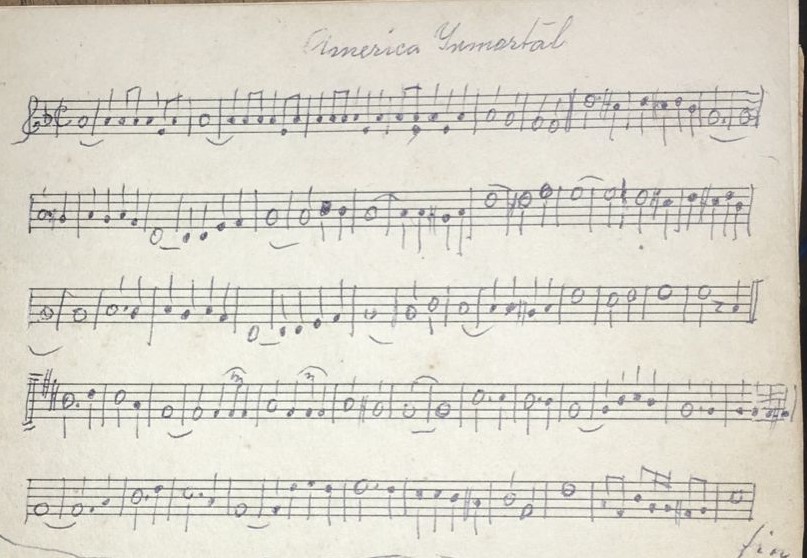 America Ynmortal
fin